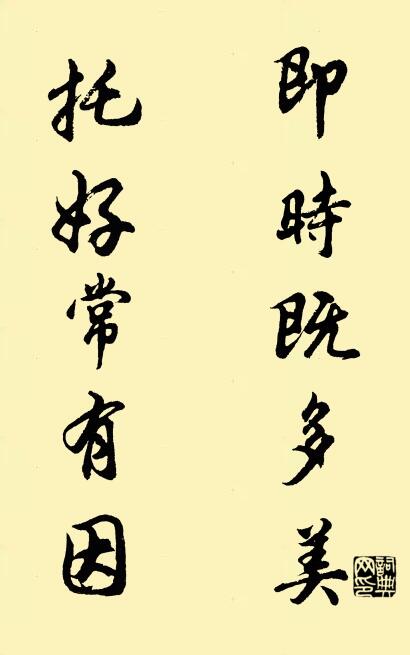 即時既多美
託好常有因
詞典網印